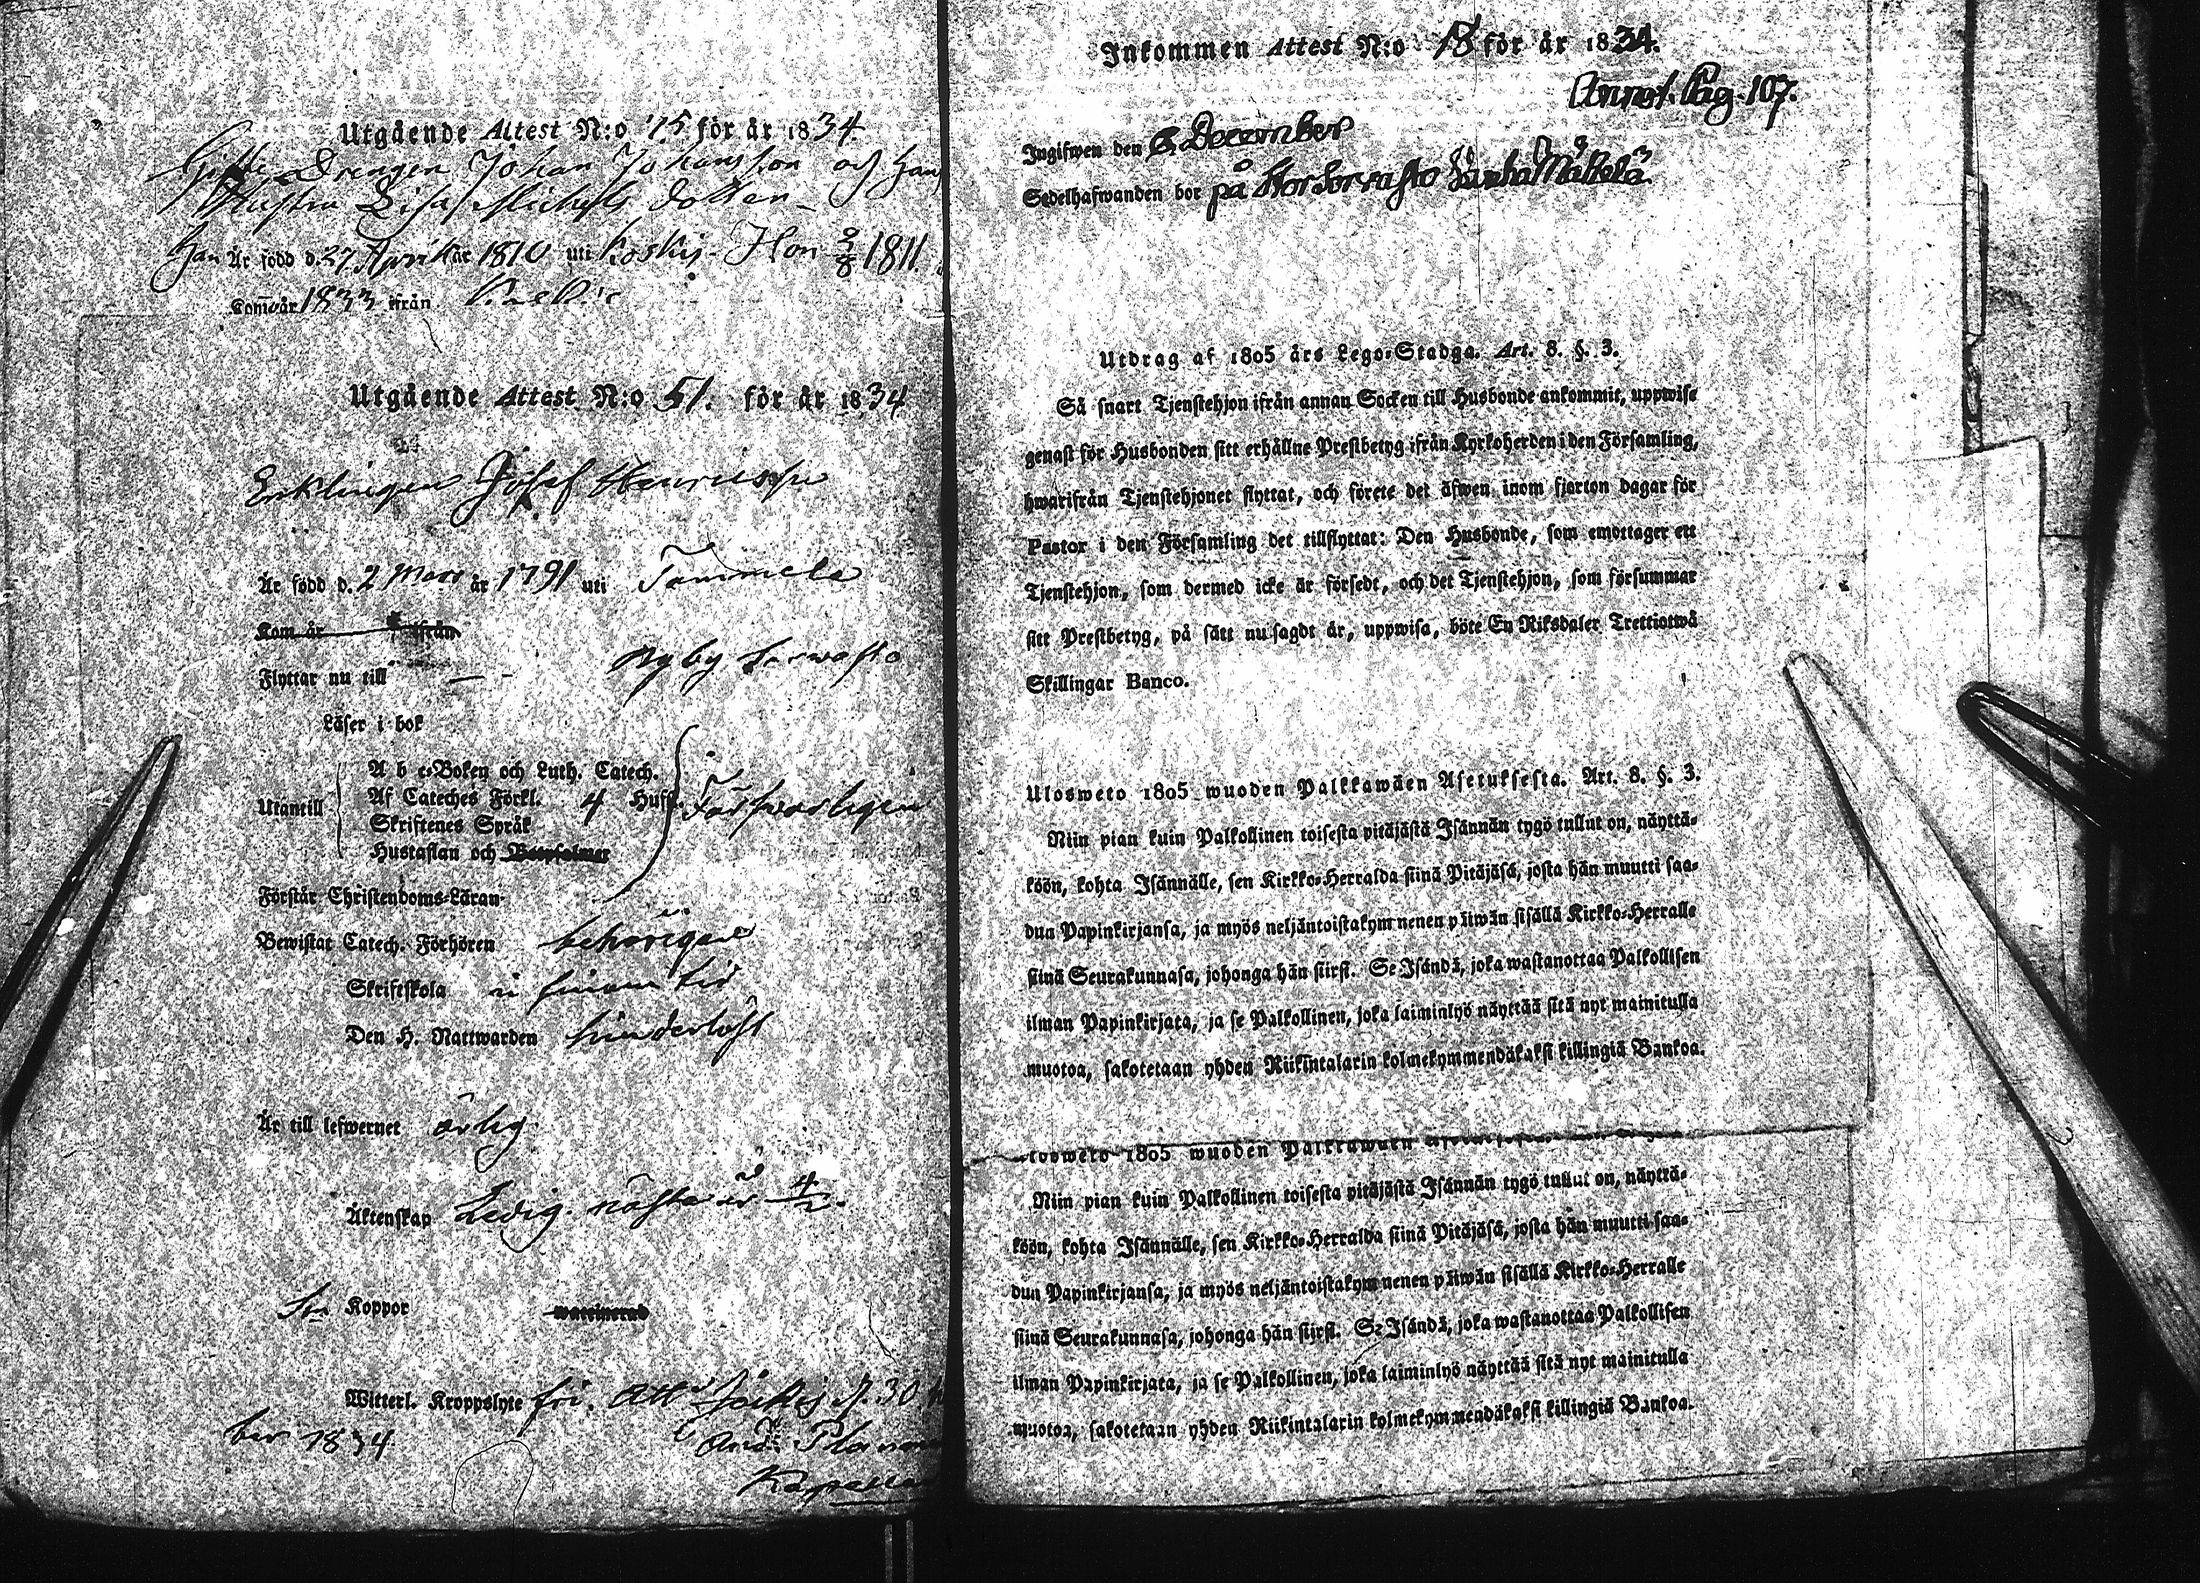 Utgående Attest N:o 75 för år 1834
Gifte Drengen Johan Johansson och hans
Hustru Lisa Michels dotter
Han Är född d. 27 April år 1810 uti Koskis. Hon 2/8 1811.
Kom år 1833 ifrån
Utgående Attest N:o 51. för år 1834
Enklingen Josef Henricsson
Är född d. 2 Mars år 1791 uti Tammela
Kom år ifrån
Flyttar nu till Nyby
Läser i bok
A b c-Boken och Luth. Catech.
Utantill Af Cateches Förkl. 4 Huft. Försvarligen
Skriftenes Språk
Hustaflan och Botpsalmer
Förstår Christendoms-Läran
Bewistat Catech. Förhören behörigen
Skriftskola i sinom tid
Den H. Nattwarden hinderlöst
Är till lefwernet ärlig
Äktenskap Ledig.
Koppor waccinerad
Witterl. Kroppslyte fri. Att. d. 30
ber 1834
And.
Kapella
Inkommen Attest N:o 18 för år 1834.
Annot. Pag. 107.
Ingifwen den 6 December
Sedelhafwanden bor på Mäkelä
Utdrag af 1805 års Lego-Stadga. Art. 8. §. 3.
Så snart Tjenstehjon ifrån annan Socken till Husbonde ankommit, uppwise
genast för Husbonden sitt erhållne Prestbetyg ifrån Kyrkoherden i den Församling,
hwarifrån Tjenstehjonet flyttat, och förete det äfwen inom fjorton dagar för
Pastor i den Församling det tillflyttat: Den Husbonde, som emottager ett
Tjenstehjon, som dermed icke är försedt, och det Tjenstehjon, som försummar
sitt Prestbetyg, på sätt nu sagdt är, uppwisa, böte En Riksdaler Trettiotwå
Skillingar Banco.
Ulosweto 1805 wuoden Palkkawäen Asetuksesta. Art. 8. §. 3.
Niin pian kuin Palkollinen toisesta pitäjästä Isännän tygö tullut on, näyttä-
köön, kohta Isännälle, sen Kirkko-Herralda siinä Pitäjäsä, josta hän muutti saa-
dun Papinkirjansa, ja myös neljäntoistakymmenen päiwän sisällä Kirkko-Herralle
siinä Seurakunnasa, johonga hän siirsi. Se Isändä, joka wastanottaa Palkollisen
ilman Papinkirjata, ja se Palkollinen, joka laiminlyö näyttää sitä nyt mainitulla
muotoa, sakotetaan yhden Riikintalarin kolmekymmendäkaksi killingiä Bankoa.
1805 wuoden Palkkawäen
Niin pian kuin Palkollinen toisesta pitäjästä Isännän tygö tullut on, näyttä-
köön, kohta Isännälle, sen Kirkko-Herralda siinä Pitäjäsä, josta hän muutti saa-
dun Papinkirjansa, ja myös neljäntoistakymmenen päiwän sisällä Kirkko-Herralle
siinä Seurakunnasa, johonga hän siirsi. Se Isändä, joka wastanottaa Palkollisen
ilman Papinkirjata, ja se Palkollinen, joka laiminlyö näyttää sitä nyt mainitulla
muotoa, sakotetaan yhden Riikintalarin kolmekymmendäkaksi killingiä Bankoa.